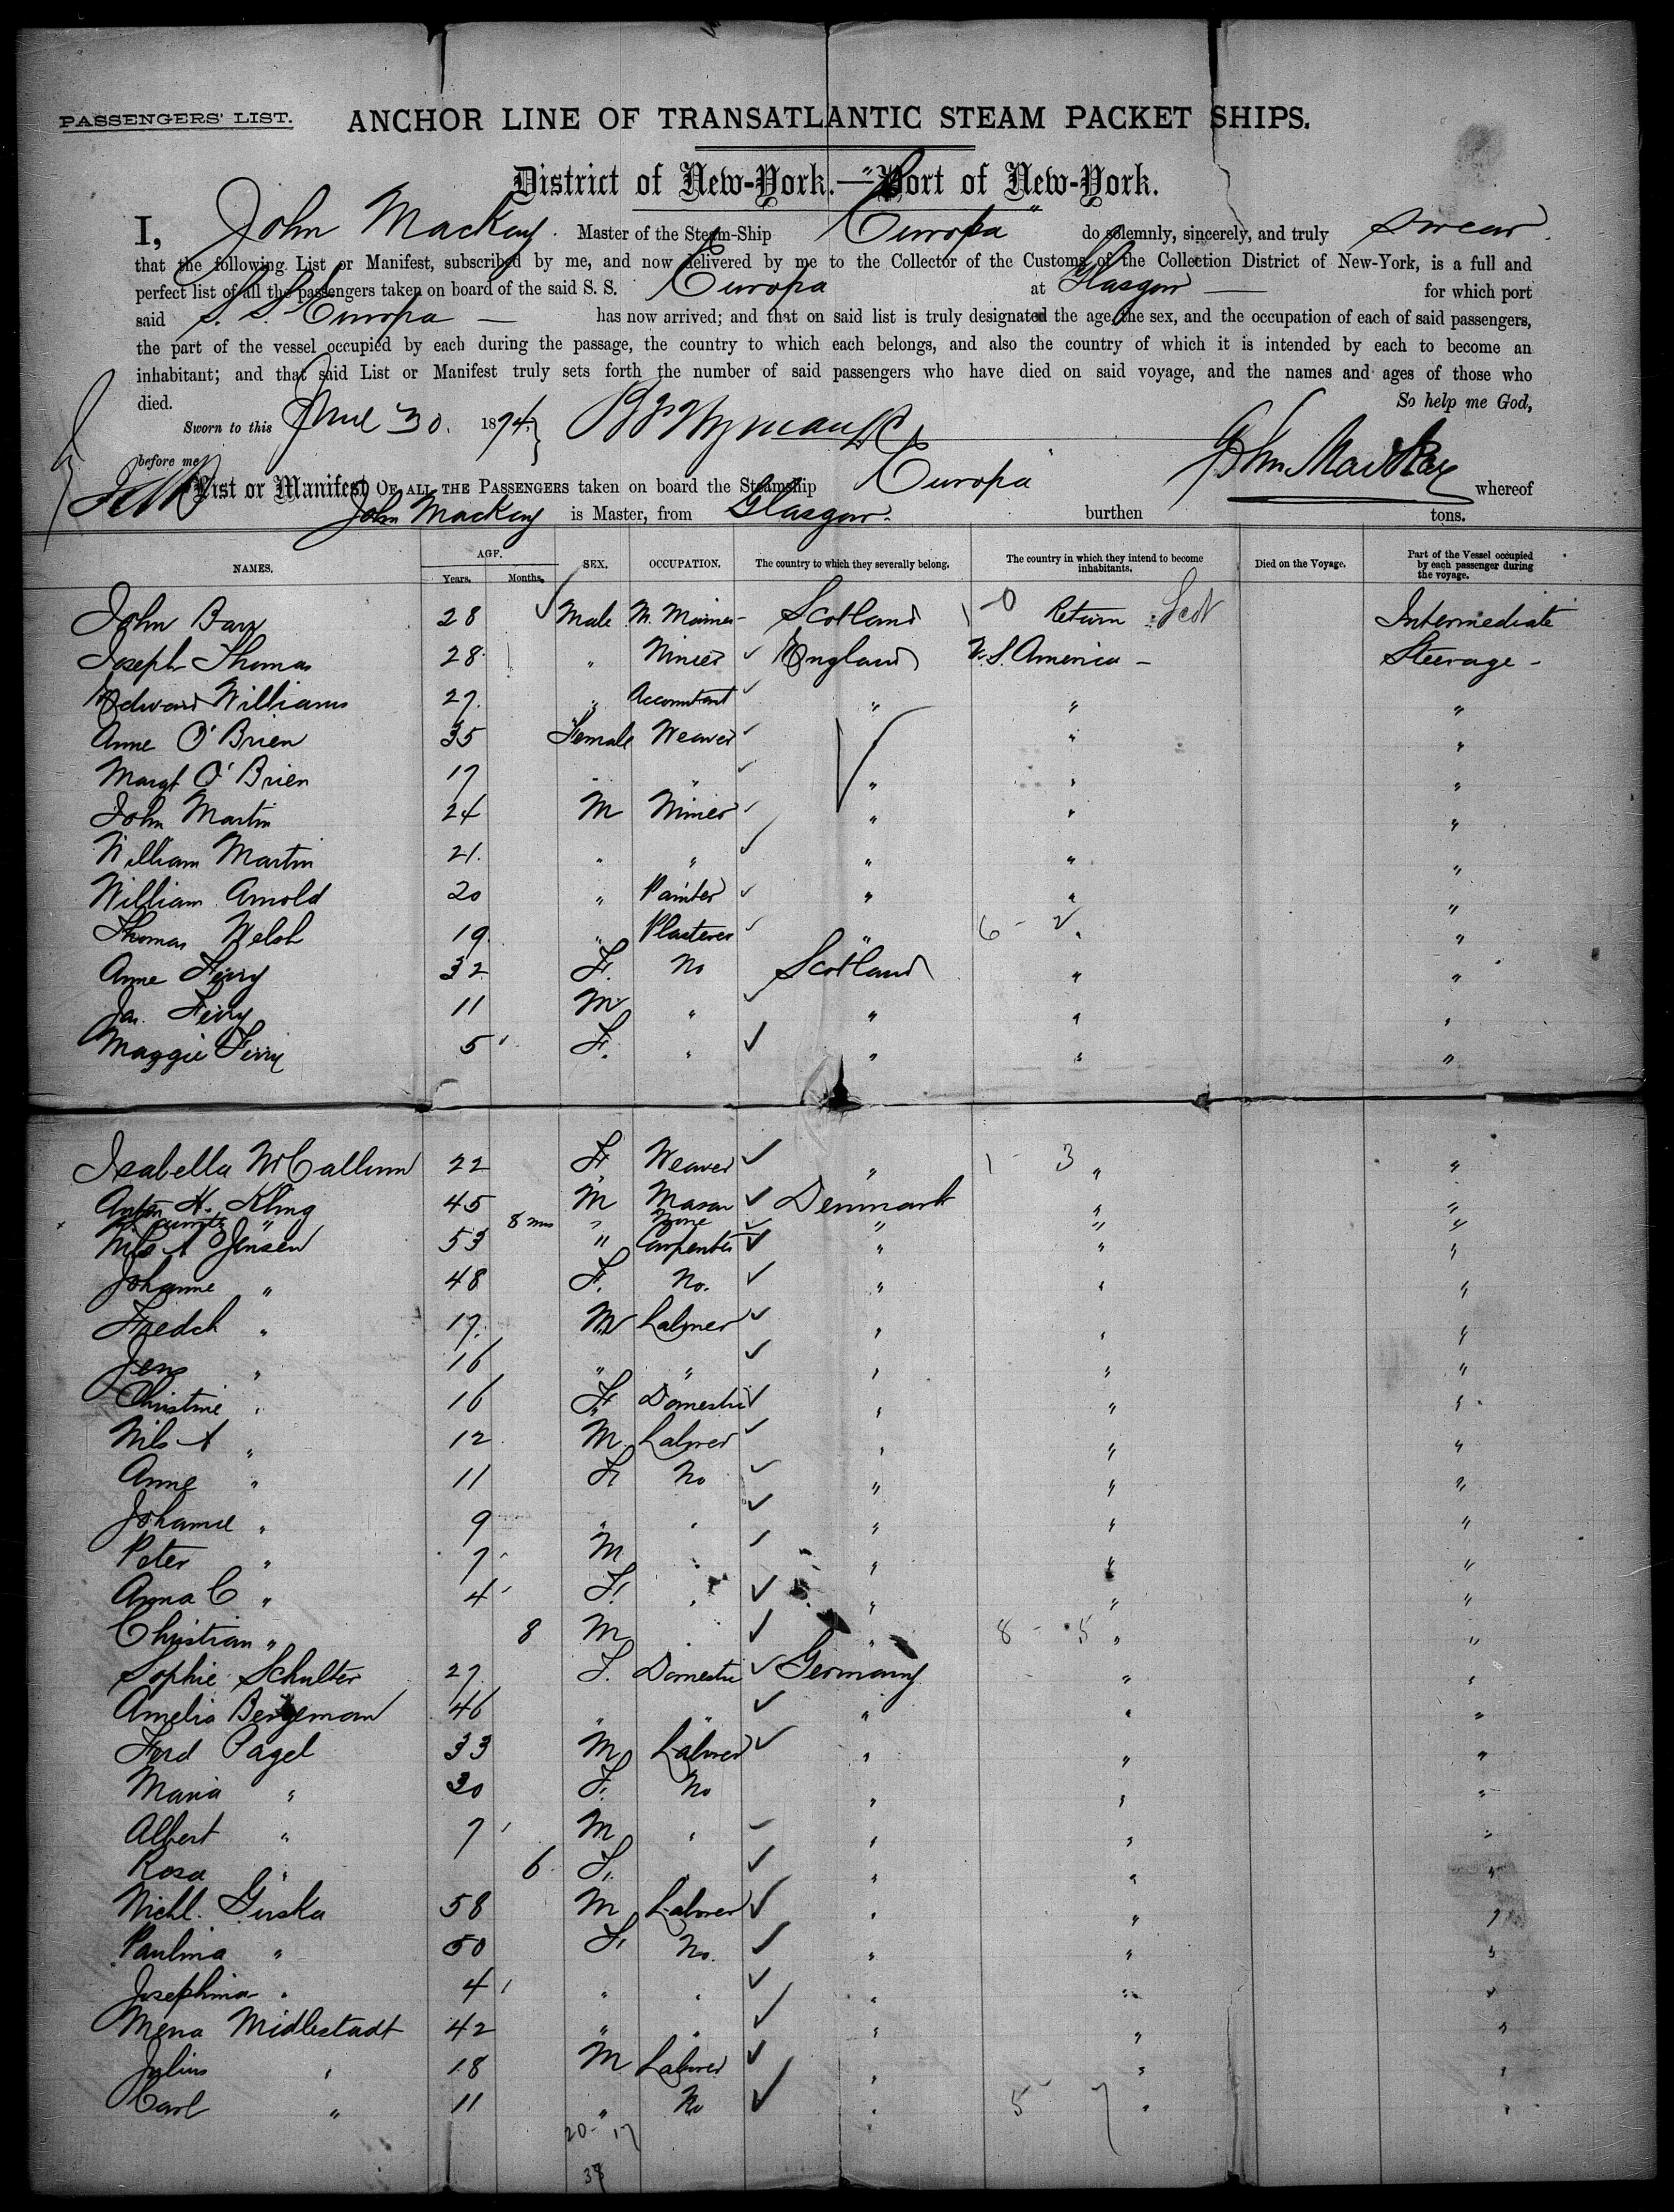 PASSENGERS' LIST. ANCHOR LINE OF TRANSATLANTIC STEAM PACKET SHIPS.
District of New-York.—Port of New-York.
I, John Mackay. Master of the Steam-Ship "Europa" do solemnly, sincerely, and truly swear
that the following List or Manifest, subscribed by me, and now delivered by me to the Collector of the Customs of the Collection District of New-York, is a full and
perfect list of all the passengers taken on board of the said S. S. Europa at Glasgow — for which port
said S. S. Europa — has now arrived; and that on said list is truly designated the age, the sex, and the occupation of each of said passengers,
the part of the vessel occupied by each during the passage, the country to which each belongs, and also the country of which it is intended by each to become an
inhabitant; and that said List or Manifest truly sets forth the number of said passengers who have died on said voyage, and the names and ages of those who
died. So help me God,
Sworn to this June 30. 1874.
before me John Mackay
List or Manifest OF ALL THE PASSENGERS taken on board the Steamship Europa whereof
John Mackay is Master, from Glasgow. burthen tons.
NAMES. AGE. Years. Months. SEX. OCCUPATION. The country to which they severally belong. The country in which they intend to become inhabitants. Died on the Voyage. Part of the Vessel occupied by each passenger during the voyage.
John Barr 28 Male Scotland 0 Return Scot Intermediate
Joseph Thomas 28 " Miner England U.S. America - Steerage -
Edward Williams 27. " Accountant " " "
Anne O'Brien 35 Female Weaver " "
Margt O'Brien 17 " " " " "
John Martin 24 M Miner " " "
William Martin 21. " " " " "
William Arnold 20 " Painter " " "
Thomas Welsh 19 " Plasterer " 6 - 2 " "
Anne Ferry 32 F. No Scotland " "
Jas. Ferry 11 M " " " "
Maggie Ferry 5 F. " " " "
Isabella McCallum 22 F Weaver " 1 - 3 " "
Anton H. Kling 45 M Mason Denmark " "
" 8 mos " None " " "
Nils A Jensen 53 " Carpenter " " "
Johanne " 48 F. No. " " "
Fredch " 17. M Labourer " " "
Jens " 16 " " " " "
Christine " 16 F Domestic " " "
Nils A " 12 M Labourer " " "
Anne " 11 F No " " "
Johanne " 9 " " " " "
Peter " 7 M " " " "
Anna C " 4 F. " " " "
Christian " 8 M " " 8 - 5 " "
Sophie Schulter 27. F. Domestic Germany " "
Amelia Bergeman 46 " " " " "
Ferd Pagel 33 M Labourer " " "
Maria " 30 F. No " " "
Albert " 7 M " " " "
Rosa " 6 F. " " " "
Michl. Guska 58 M Labourer " " "
Paulina " 50 F No. " " "
Josephina " 4 " " " " "
Mena Midlestadt 42 " " " " "
Julius " 18 M Labourer " " "
Carl " 11 " No " 5 - 7 " "
20 - 17